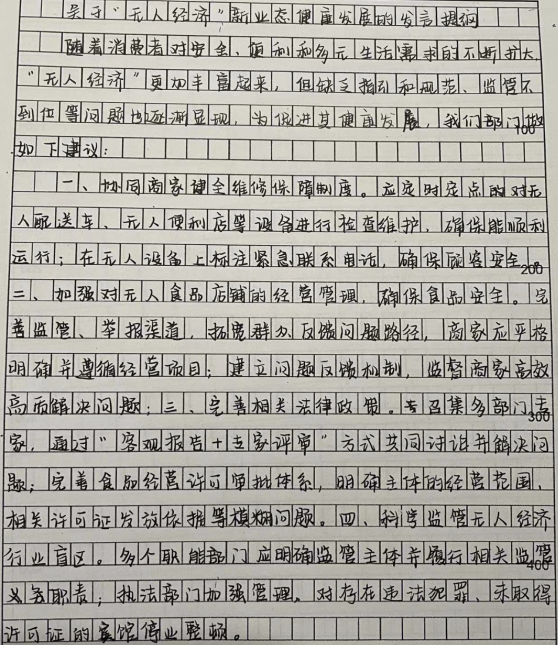 关于“无人经济”新业态健康发展的发言提纲
随着消费者对安全、便利和多元生活需求的不断扩大,
“无人经济”更加丰富起来，但缺乏指引和规范、监管不
到位等问题也逐渐显现，为促进其健康发展，我们部门做
100
如下建议：
一、协同商家建全维修保障制度。应定时定点的对无
人配送车、无人便利店等设备进行检查维护，确保能顺利
运行；在无人设备上标注紧急联系电话，确保顾客安全。
200
二、加强对无人食品店铺的经营管理，确保食品安全。完
善监管、举报渠道，拓宽群办反馈问题路径，商家应严格
明确并遵循经营项目；建立问题反馈机制，监督商家高效
高质解决问题；三、完善相关法律政策。召集多部门专
300
家，通过“客观报告+专家评审”方式共同讨论并解决问
题；完善食品经营许可审批体系，明确主体的经营范围、
相关许可证发放依据等模糊问题。四、科学监管无人经济
行业盲区。多个职能部门应明确监管主体并履行相关监管
400
义务职责；执法部门加强管理，对存在违法犯罪、未取得
许可证的宾馆停业整顿。